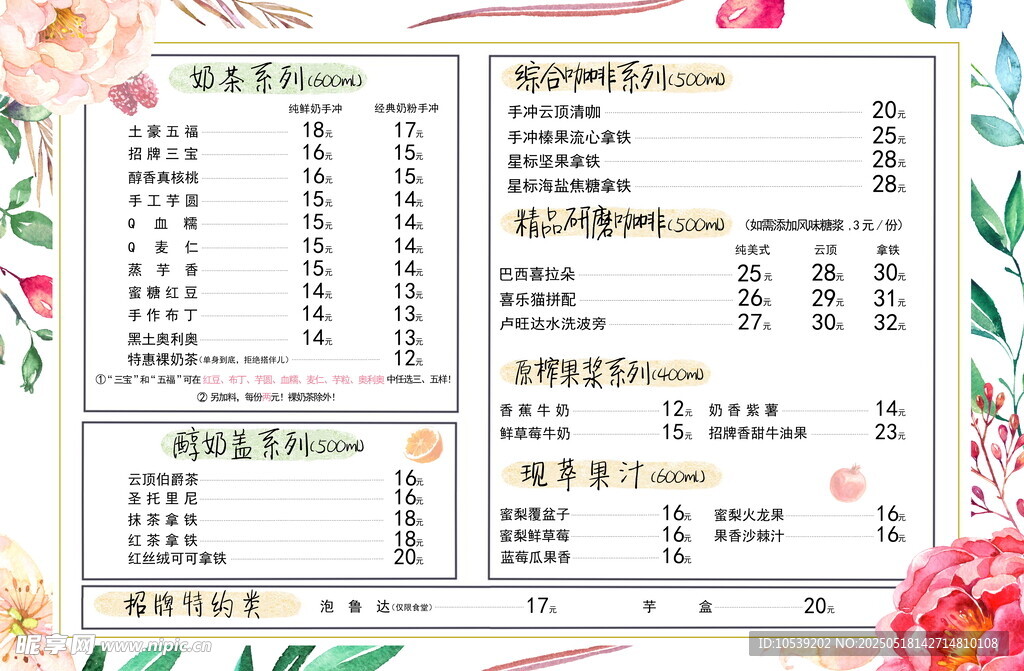 奶茶系列(600ml)
纯鲜奶手冲 经典奶粉手冲
土豪五福 18元 17元
招牌三宝 16元 15元
醇香真核桃 16元 15元
手工芋圆 15元 14元
Q血糯 15元 14元
Q麦仁 15元 14元
蒸芋香 15元 14元
蜜糖红豆 14元 13元
手作布丁 14元 13元
黑土奥利奥 14元 13元
特惠裸奶茶(单身到底，拒绝搭伴儿) 12元
①“三宝”和“五福”可在红豆、布丁、芋圆、血糯、麦仁、芋粒、奥利奥 中任选三、五样！
② 另加料，每份两元！裸奶茶除外！
醇奶盖系列(500ml)
云顶伯爵茶 16元
圣托里尼 16元
抹茶拿铁 18元
红茶拿铁 18元
红丝绒可可拿铁 20元
综合咖啡系列(500ml)
手冲云顶清咖 20元
手冲榛果流心拿铁 25元
星标坚果拿铁 28元
星标海盐焦糖拿铁 28元
精品研磨咖啡(500ml) (如需添加风味糖浆 .3元/份)
纯美式 云顶 拿铁
巴西喜拉朵 25元 28元 30元
喜乐猫拼配 26元 29元 31元
卢旺达水洗波旁 27元 30元 32元
原榨果浆系列(400ml)
香蕉牛奶 12元 奶香紫薯 14元
鲜草莓牛奶 15元 招牌香甜牛油果 23元
现萃果汁(600ml)
蜜梨覆盆子 16元 蜜梨火龙果 16元
蜜梨鲜草莓 16元 果香沙棘汁 16元
蓝莓瓜果香 16元
招牌特约类 泡鲁达(仅限食堂) 17元 芋盒 20元
昵享网 www.nipic.cn
ID:10539202 NO:20250518142714810108